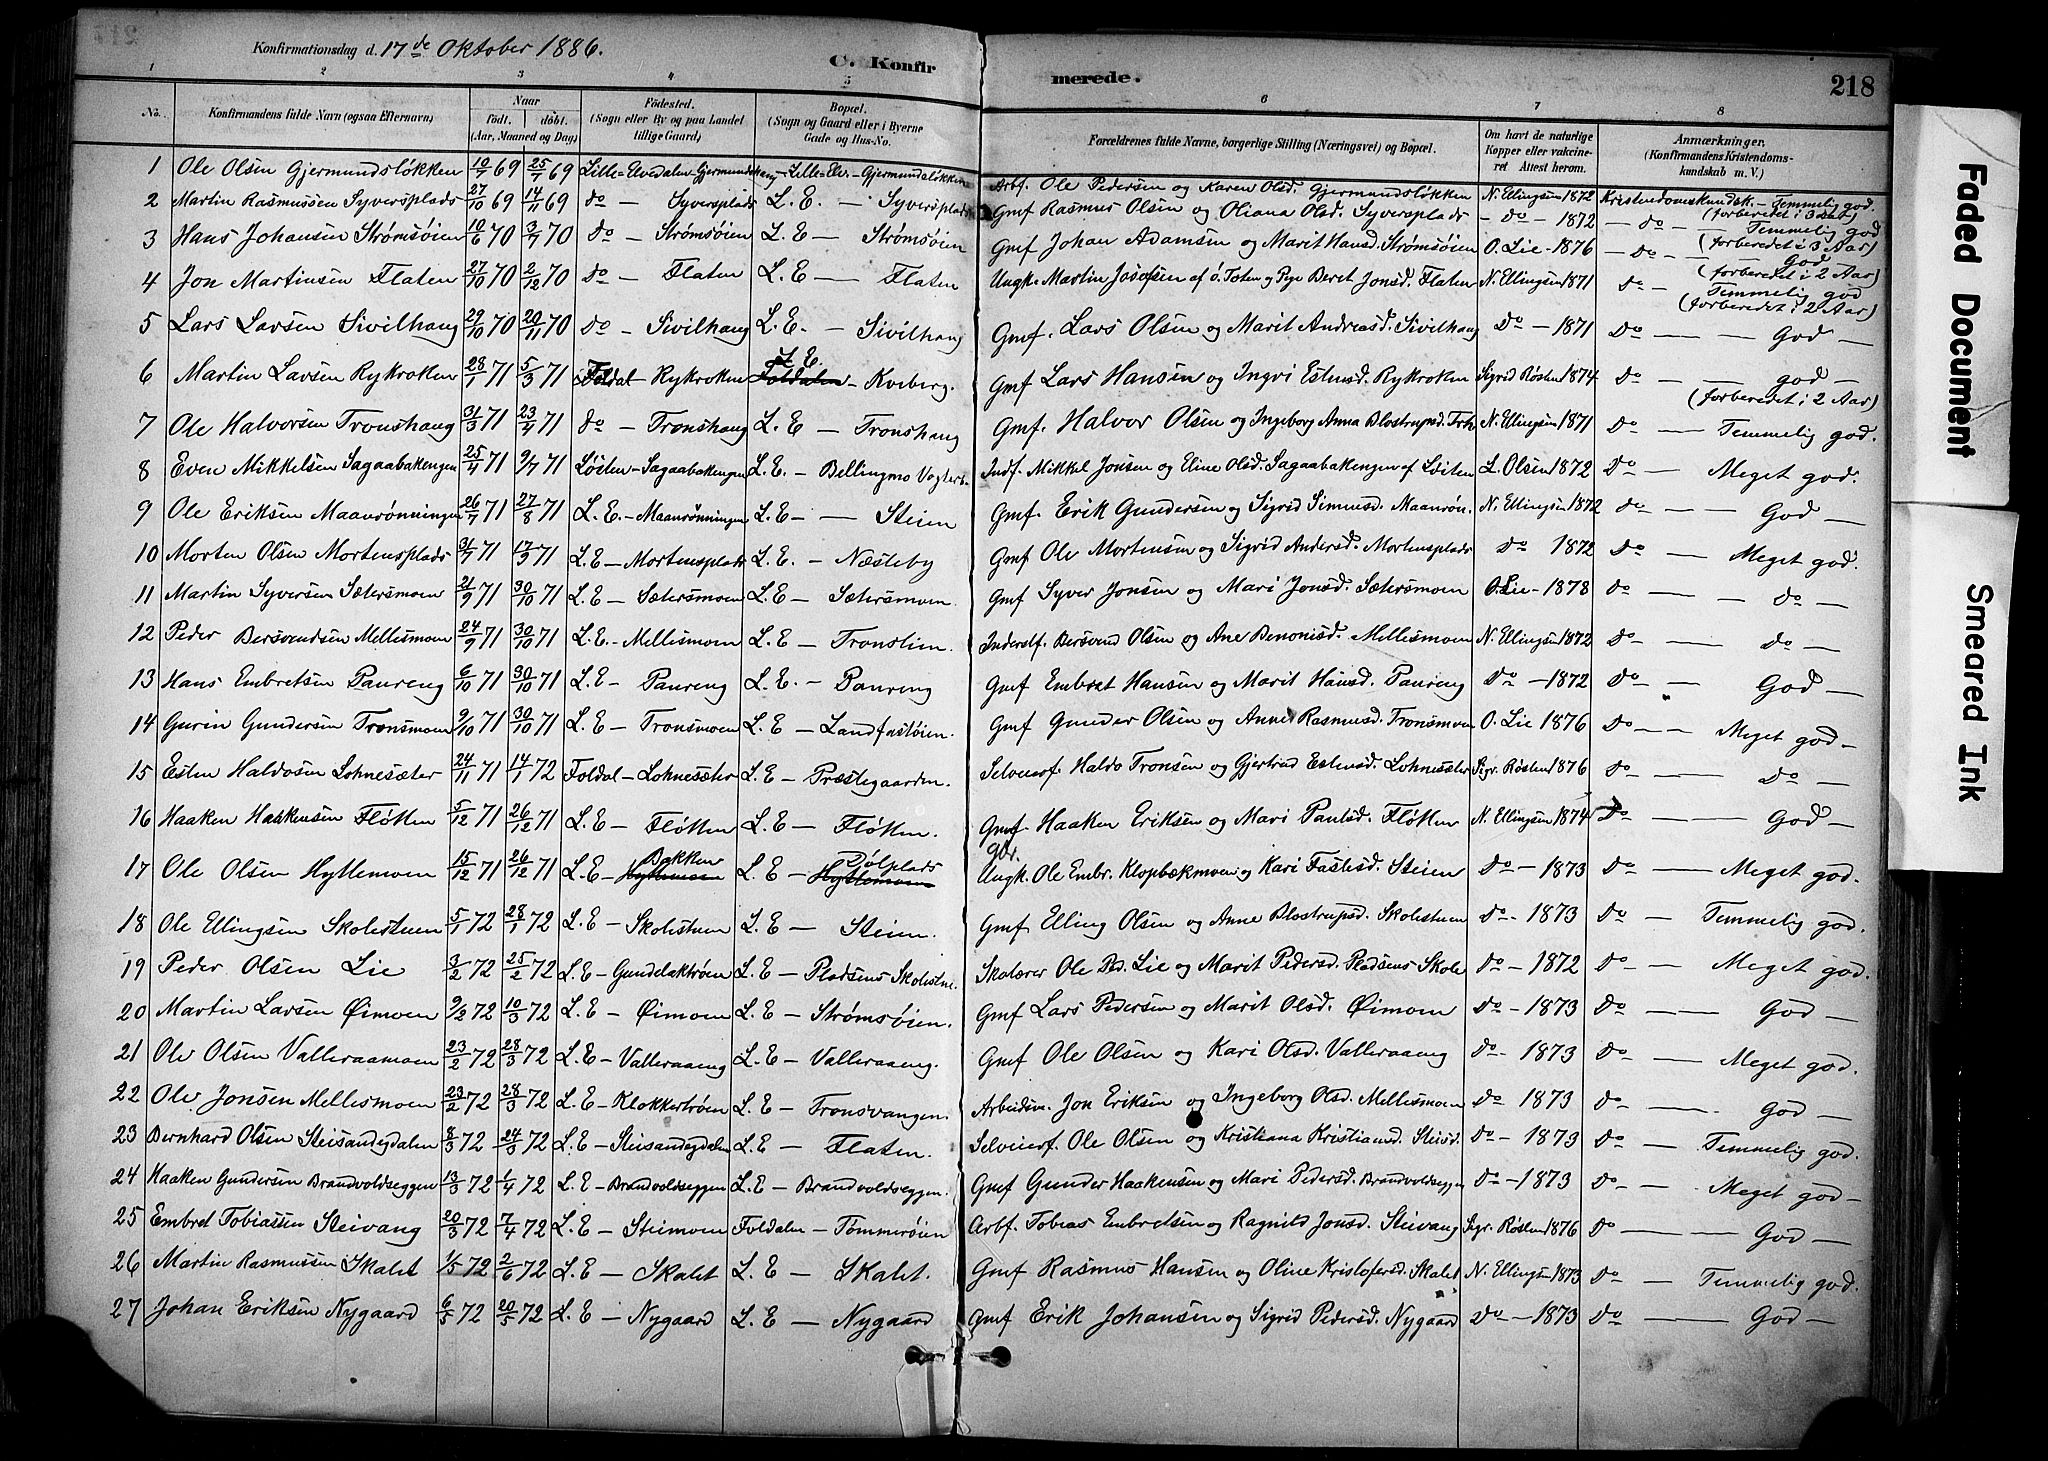 Konfirmationsdag d. 17de Oktober 1886.
C. Konfirmerede.
218
1 2 3 4 5 6 7 8
No. Konfirmandens fulde Navn (ogsaa Efternavn) Naar født. døbt. (Aar, Maaned og Dag) Fødested. (Sogn eller By og paa Landet tillige Gaard) Bopæl. (Sogn og Gaard eller i Byerne Gade og Hus-No. Forældrenes fulde Navne, borgerlige Stilling (Næringsvei) og Bopæl. Om havt de naturlige Kopper eller vakcineret Attest herom. Anmærkninger. (Konfirmandens Kristendomskundskab m. V.)
1 Ole Olsen Gjermundsløkken 10/1 69 25/1 69 Lille-Elvedalen-Gjermundshaug Lille-Elv. - Gjermundsløkken Arbf. Ole Pedersen og Karen Olsd. Gjermundsløkken N. Ellingsen 1872 Kristendomskundsk. - Temmelig god. (forberedet i 3 Aar)
2 Martin Rasmussen Syversplads 27/10 69 14/11 69 do - Syversplads L. E. - Syversplads Gmf Rasmus Olsen og Oliana Olsd. Syversplads - do - 1872 - do - Temmelig god (forberedet i 3 Aar)
3 Hans Johansen Strømsøien 10/6 70 3/7 70 do - Strømsøien L. E - Strømsøien Gmf Johan Adamsen og Marit Hansd. Strømsøien O. Lie - 1876 - do - God (forberedet i 2 Aar)
4 Jon Martinsen Flaten 27/10 70 2/12 70 do - Flaten L. E - Flaten Ungk. Martin Josefsen af ø. Toten og Pige Beret Jonsd. Flaten N. Ellingsen 1871 do - Temmelig god (forberedet i 2 Aar)
5 Lars Larsen Sivilhaug 29/10 70 20/11 70 do - Sivilhaug L. E. - Sivilhaug Gmf. Lars Olsen og Marit Andreasd. Sivilhaug do - 1871 do - - God -
6 Martin Larsen Rykroken 28/1 71 5/3 71 Foldal - Rykroken L. E. Foldalen - Kveberg. Gmf Lars Hansen og Ingri Estensd. Rykroken Sigrid Røsten 1874 do - god - (forberedet i 2 Aar)
7 Ole Halvorsen Tronshaug 31/3 71 23/4 71 do - Tronshaug L. E - Tronshaug Gmf. Halvor Olsen og Ingeborg Anna Blostrupsd. Trh. N. Ellingsen 1871 do - Temmelig god.
8 Even Mikkelsen Sagaabakengen 25/4 71 9/7 71 Løsten - Sagaabakengen L. E. - Bellingmo Vogterb. Indf. Mikkel Jonsen og Eline Olsd. Sagaabakengen af Løiten L. Olsen 1872 do - Meget god.
9 Ole Eriksen Maanrønningen 26/7 71 27/8 71 L. E. - Maanrønningen L. E - - Steien Gmf. Erik Gundersen og Sigrid Simensd. Maanrøn. N. Ellingsen 1872 do - God -
10 Morten Olsen Mortensplads 31/7 71 17/9 71 L. E - Mortensplads L. E. - Næsteby Gmf Ole Mortensen og Sigrid Andersd. Mortensplads do 1872 do - Meget god.
11 Martin Syversen Sætersmoen 21/9 71 30/10 71 L. E - Sætersmoen L. E - Sætersmoen. Gmf Syver Jonsen og Mari Jonsd. Sætersmoen O. Lie - 1878 do - - do -
12 Peder Bersvendsen Mellesmoen 24/9 71 30/10 71 L. E. - Mellesmoen L. E - Tronslien. Inderstf. Bersvend Olsen og Ane Benonisd. Mellesmoen N. Ellingsen 1872 do - - do -
13 Hans Embretsen Paureng 6/10 71 30/10 71 L. E - Paureng L. E. - Paureng Gmf Embret Hansen og Marit Hansd. Paureng do - 1872 do - God -
14 Gurin Gundersen Tronsmoen 9/10 71 30/10 71 L. E - Tronsmoen L. E - Landfastøien. Gmf Gunder Olsen og Anne Rasmusd. Tronsmoen O. Lie 1876 do - - Meget god -
15 Esten Haldosen Lohnesæter 24/11 71 14/1 72 Foldal - Lohnesæter L. E - Præstegaarden. Selveierf. Haldo Tronsen og Gjertrud Estensd. Lohnesæter Sigr. Røsten 1876 do - do -
16 Haaken Haakensen Fløtten 5/12 71 26/12 71 L. E - Fløtten L. E - Fløtten. Gmf. Haaken Eriksen og Mari Paulsd. Fløtten N. Ellingsen 1874 do - God -
17 Ole Olsen Hyttemoen 15/12 71 26/12 71 L. E - Bakken Hyttemoen L. E - Dølplads Hyttemoen Ungk. Ole Embr. Klopbækmoen og Kari Fastesd. Steien do - 1873 do - Meget god.
18 Ole Ellingsen Skolestuen 5/1 72 28/1 72 L. E - Skolestuen L. E - Steien. Gmf Elling Olsen og Anne Blostrupsd. Skolestuen do - 1873 do - Temmelig god.
19 Peder Olsen Lie 3/2 72 25/2 72 L. E - Gundelaktrøen L. E - Pladsens Skolestue. Skolærer Ole Pd. Lie og Marit Pedersd. Pladsens Skole do - 1872 do - Meget god.
20 Martin Larsen Øimoen 9/2 72 10/3 72 L. E - Øimoen L. E - Strømsøien. Gmf Lars Pedersen og Marit Olsd. Øimoen do - 1873 do - God -
21 Ole Olsen Valleraamoen 23/2 72 28/3 72 L. E - Valleraaeng L. E - Valleraaeng. Gmf Ole Olsen og Kari Olsd. Valleraaeng do - 1873 do - Meget god.
22 Ole Jonsen Mellesmoen 23/2 72 28/3 72 L. E - Klokkertrøen L. E - Tronsvangen. Arbeidsm. Jon Eriksen og Ingeborg Olsd. Mellesmoen do - 1873 do - God -
23 Bernhard Olsen Steisandegdalen 8/3 72 24/3 72 L. E - Steisandegdalen L. E - Flaten. Selveierf. Ole Olsen og Kristiana Kristiansd. Steisd. do - 1873 do - Temmelig god.
24 Haaken Gundersen Brandvoldseggen 13/3 72 1/4 72 L. E - Brandvoldseggen L. E - Brandvoldseggen. Gmf Gunder Haakensen og Mari Pedersd. Brandvoldseggen do - 1873 do - Meget god -
25 Embret Tobiassen Steivang 20/3 72 7/4 72 L. E - Steimoen Foldalen - Tømmerøien Arbf. Tobias Embretsen og Ragnild Jonsd. Steivang Sigr. Røsten 1876 do - God -
26 Martin Rasmussen Skalet 1/5 72 2/6 72 L. E - Skalet L. E - Skalet. Gmf Rasmus Hansen og Oline Kristofersd. Skalet N. Ellingsen 1873 do - Temmelig god.
27 Johan Eriksen Nygaard 6/5 72 20/5 72 L. E - Nygaard L. E - Nygaard Gmf Erik Johansen og Sigrid Pedersd. Nygaard do - 1873 do - God -
Faded Document
Smeared Ink